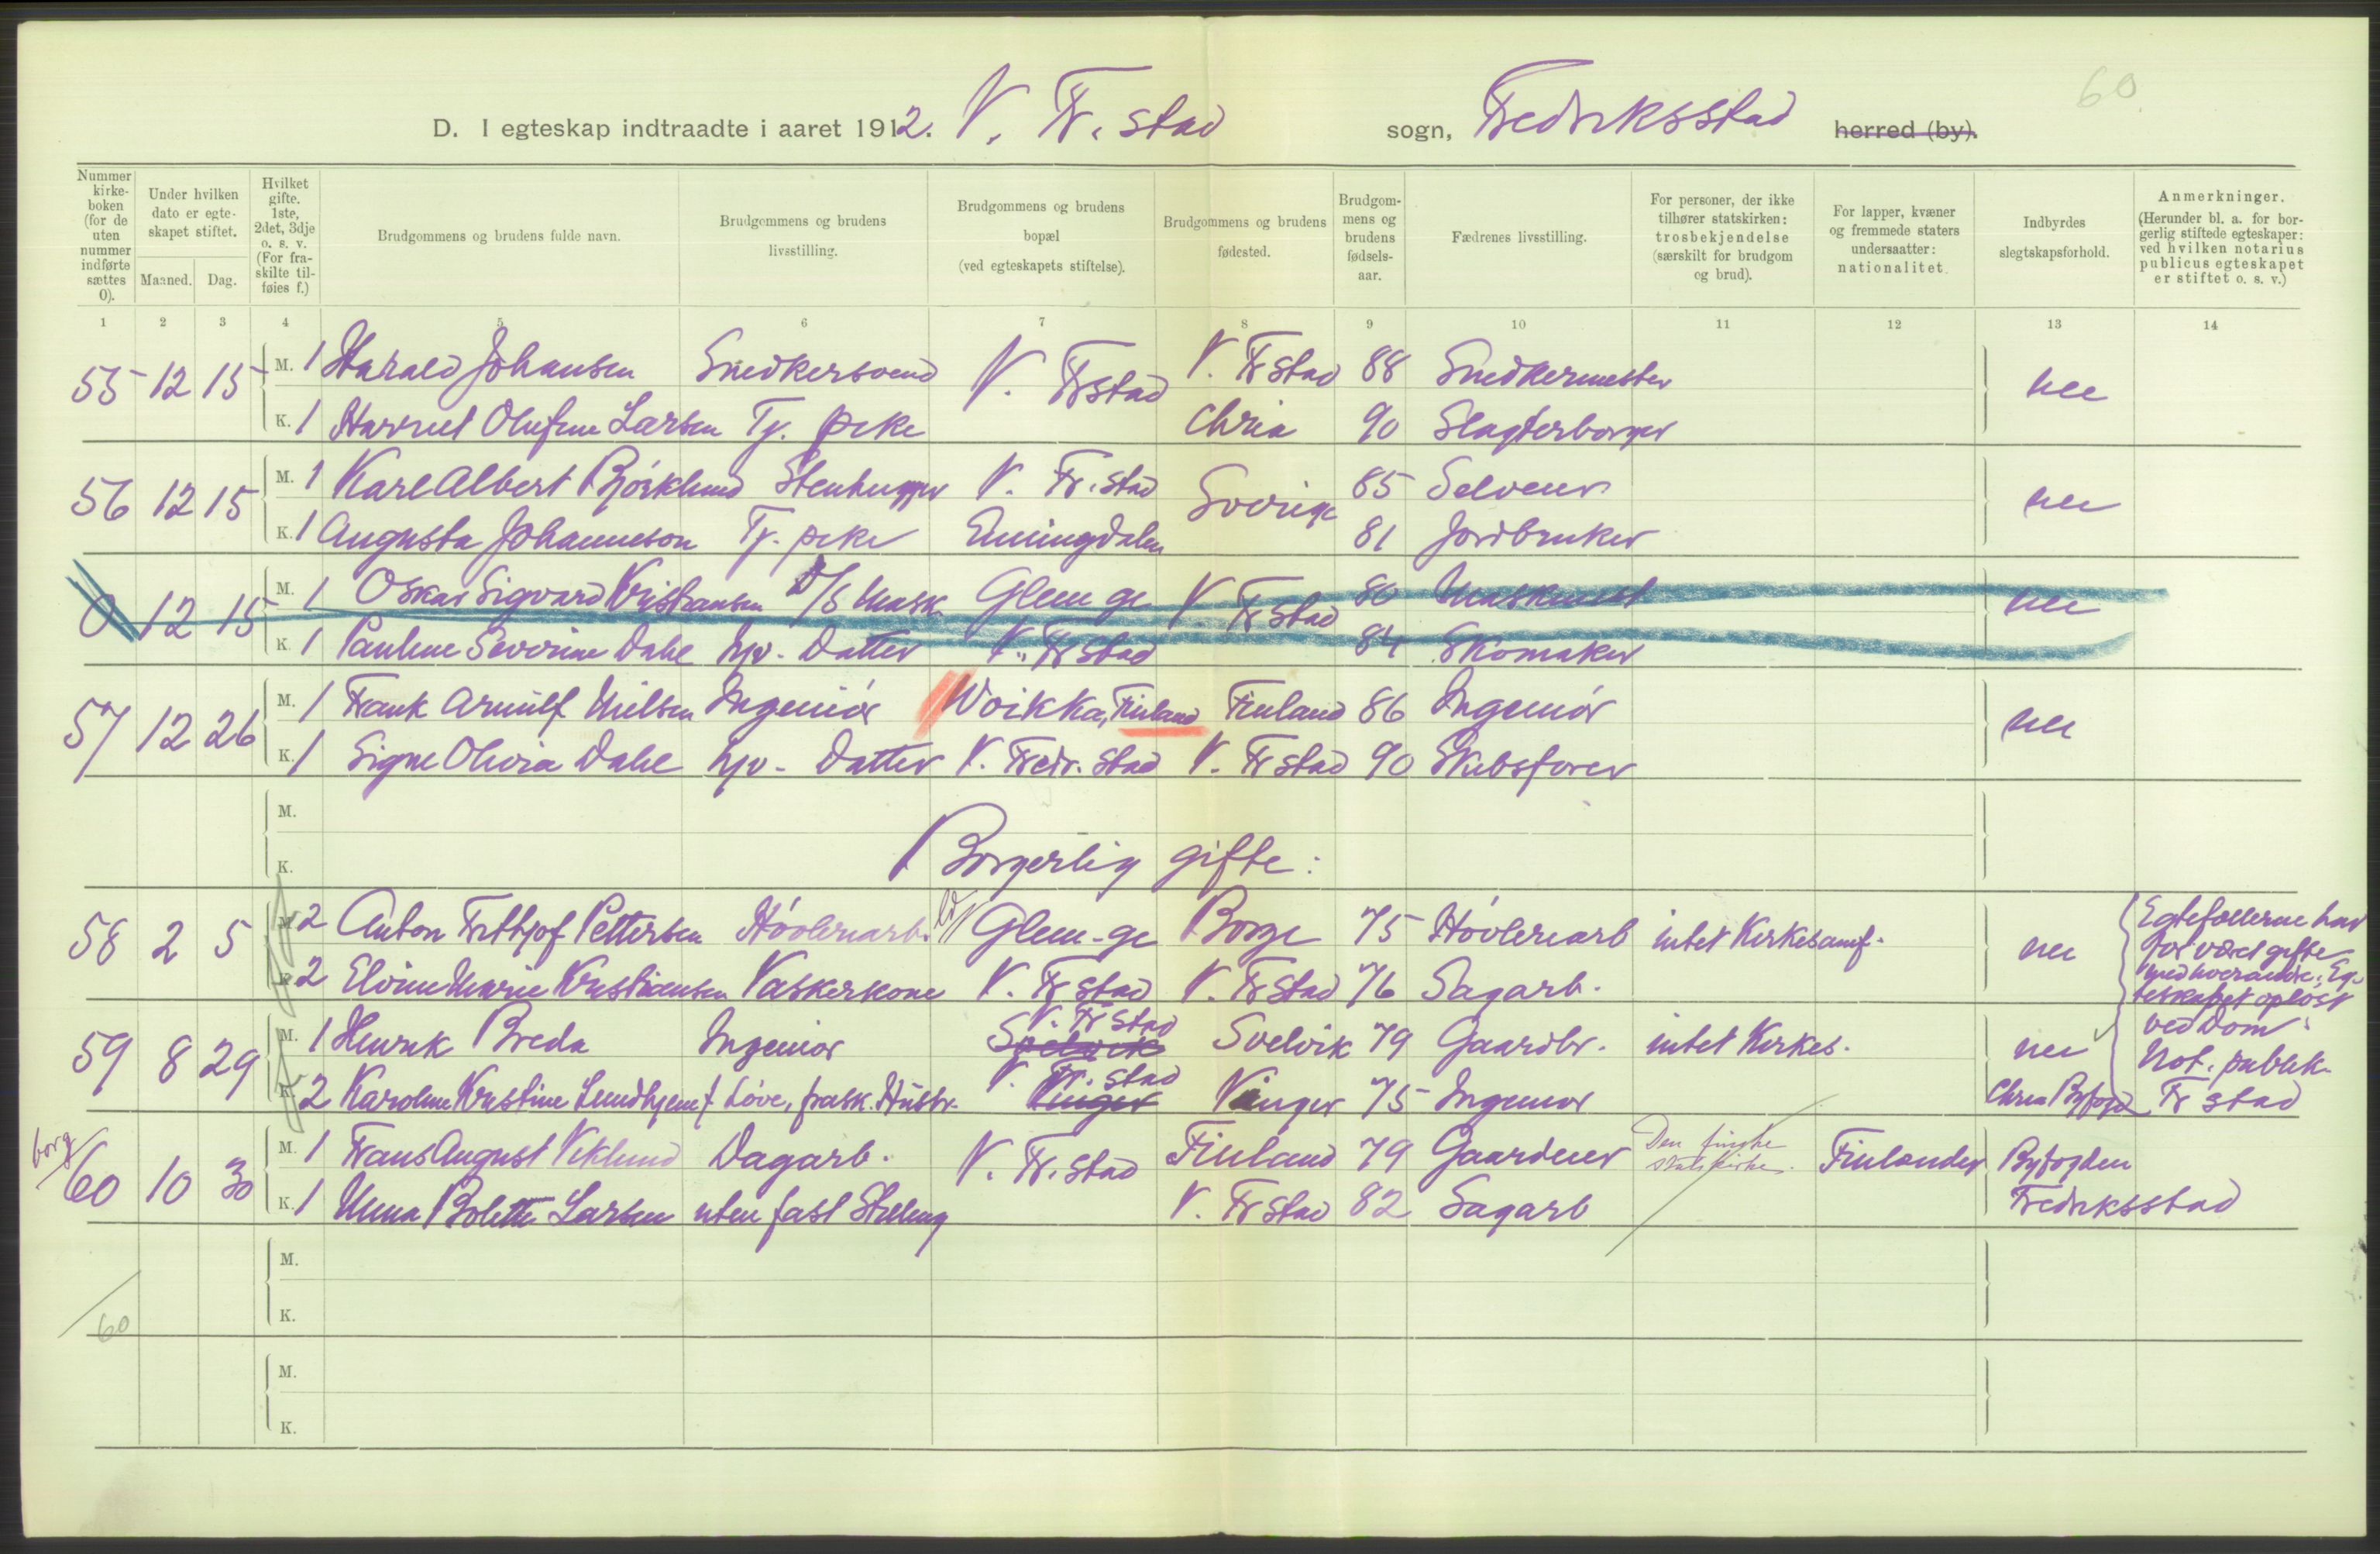 60
D. I egteskap indtraadte i aaret 1912. V. Fr. stad sogn, Fredriksstad herred (by).
Nummer kirke-boken (for de uten nummer indførte sættes 0).
Under hvilken dato er egte-skapet stiftet.
Maaned. Dag.
Hvilket gifte. 1ste, 2det, 3dje o. s. v. (For fra-skilte til-føies f.)
Brudgommens og brudens fulde navn.
Brudgommens og brudens livsstilling.
Brudgommens og brudens bopæl (ved egteskapets stiftelse).
Brudgommens og brudens fødested.
Brudgom-mens og brudens fødsels-aar.
Fædrenes livsstilling.
For personer, der ikke tilhører statskirken: trosbekjendelse (særskilt for brudgom og brud).
For lapper, kvæner og fremmede staters undersaatter: nationalitet.
Indbyrdes slegtskapsforhold.
Anmerkninger. (Herunder bl. a. for bor-gerlig stiftede egteskaper: ved hvilken notarius publicus egteskapet er stiftet o. s. v.)
1 2 3 4 5 6 7 8 9 10 11 12 13 14
55 12 15 M. 1 Harald Johansen Snedkersvend V. Frstad V. Frstad 88 Snedkermester nei
K. 1 Harriet Olufine Larsen Tj. pike Chria 90 Slagterborger
56 12 15 M. 1 Karl Albert Bjørklund Stenhugger V. Fr. stad Sverige 85 Selveier nei
K. 1 Augusta Johanneson Tj. pike Enningdalen 81 Jordbruker
0 12 15 M. 1 Oskar Sigvard Kristiansen D/S Mask. Glem ge V. Frstad 80 Maskinist nei
K. 1 Pauline Severine Dahl hjv. Datter V. Frstad 84 Skomaker
57 12 26 M. 1 Frank Arnulf Nielsen Ingeniør Woikka, Finland Finland 86 Ingeniør nei
K. 1 Signe Olivia Dahl hjv. Datter V. Fredr. stad V. Frstad 90 Skibsfører
M.
K. Borgerlig gifte:
58 2 5 M. 2 Anton Frithjof Pettersen Høvleriarb. Glem-ge Borge 75 Høvleriarb intet Kirkesamf. nei
K. 2 Elvine Marie Kristiansen Vaskerkone V. Frstad V. Frstad 76 Sagarb.
Egtefællerne har
før været gifte
med hverandre; Eg-
teskapet opløst
ved Dom.
Not. publik.
Fr stad
59 8 29 M. 1 Henrik Breda Ingeniør V. Fr stad Svelvik Svelvik 79 Gaardbr. intet Kirkes. nei
K. 2 Karoline Kristine Lundhjem f. Løve, frask. Hustr. V. Fr. stad Vinger Vinger 75 Ingeniør Chria Byfogd
borg
60 10 30 M. 1 Frans August Viklund Dagarb. V. Fr. stad Finland 79 Gaardeier Den finske statskirke. Finlænder Byfogden
K. 1 Anna Bolette Larsen uten fast Stilling V. Frstad 82 Sagarb Fredriksstad
M.
K.
60
M.
K.